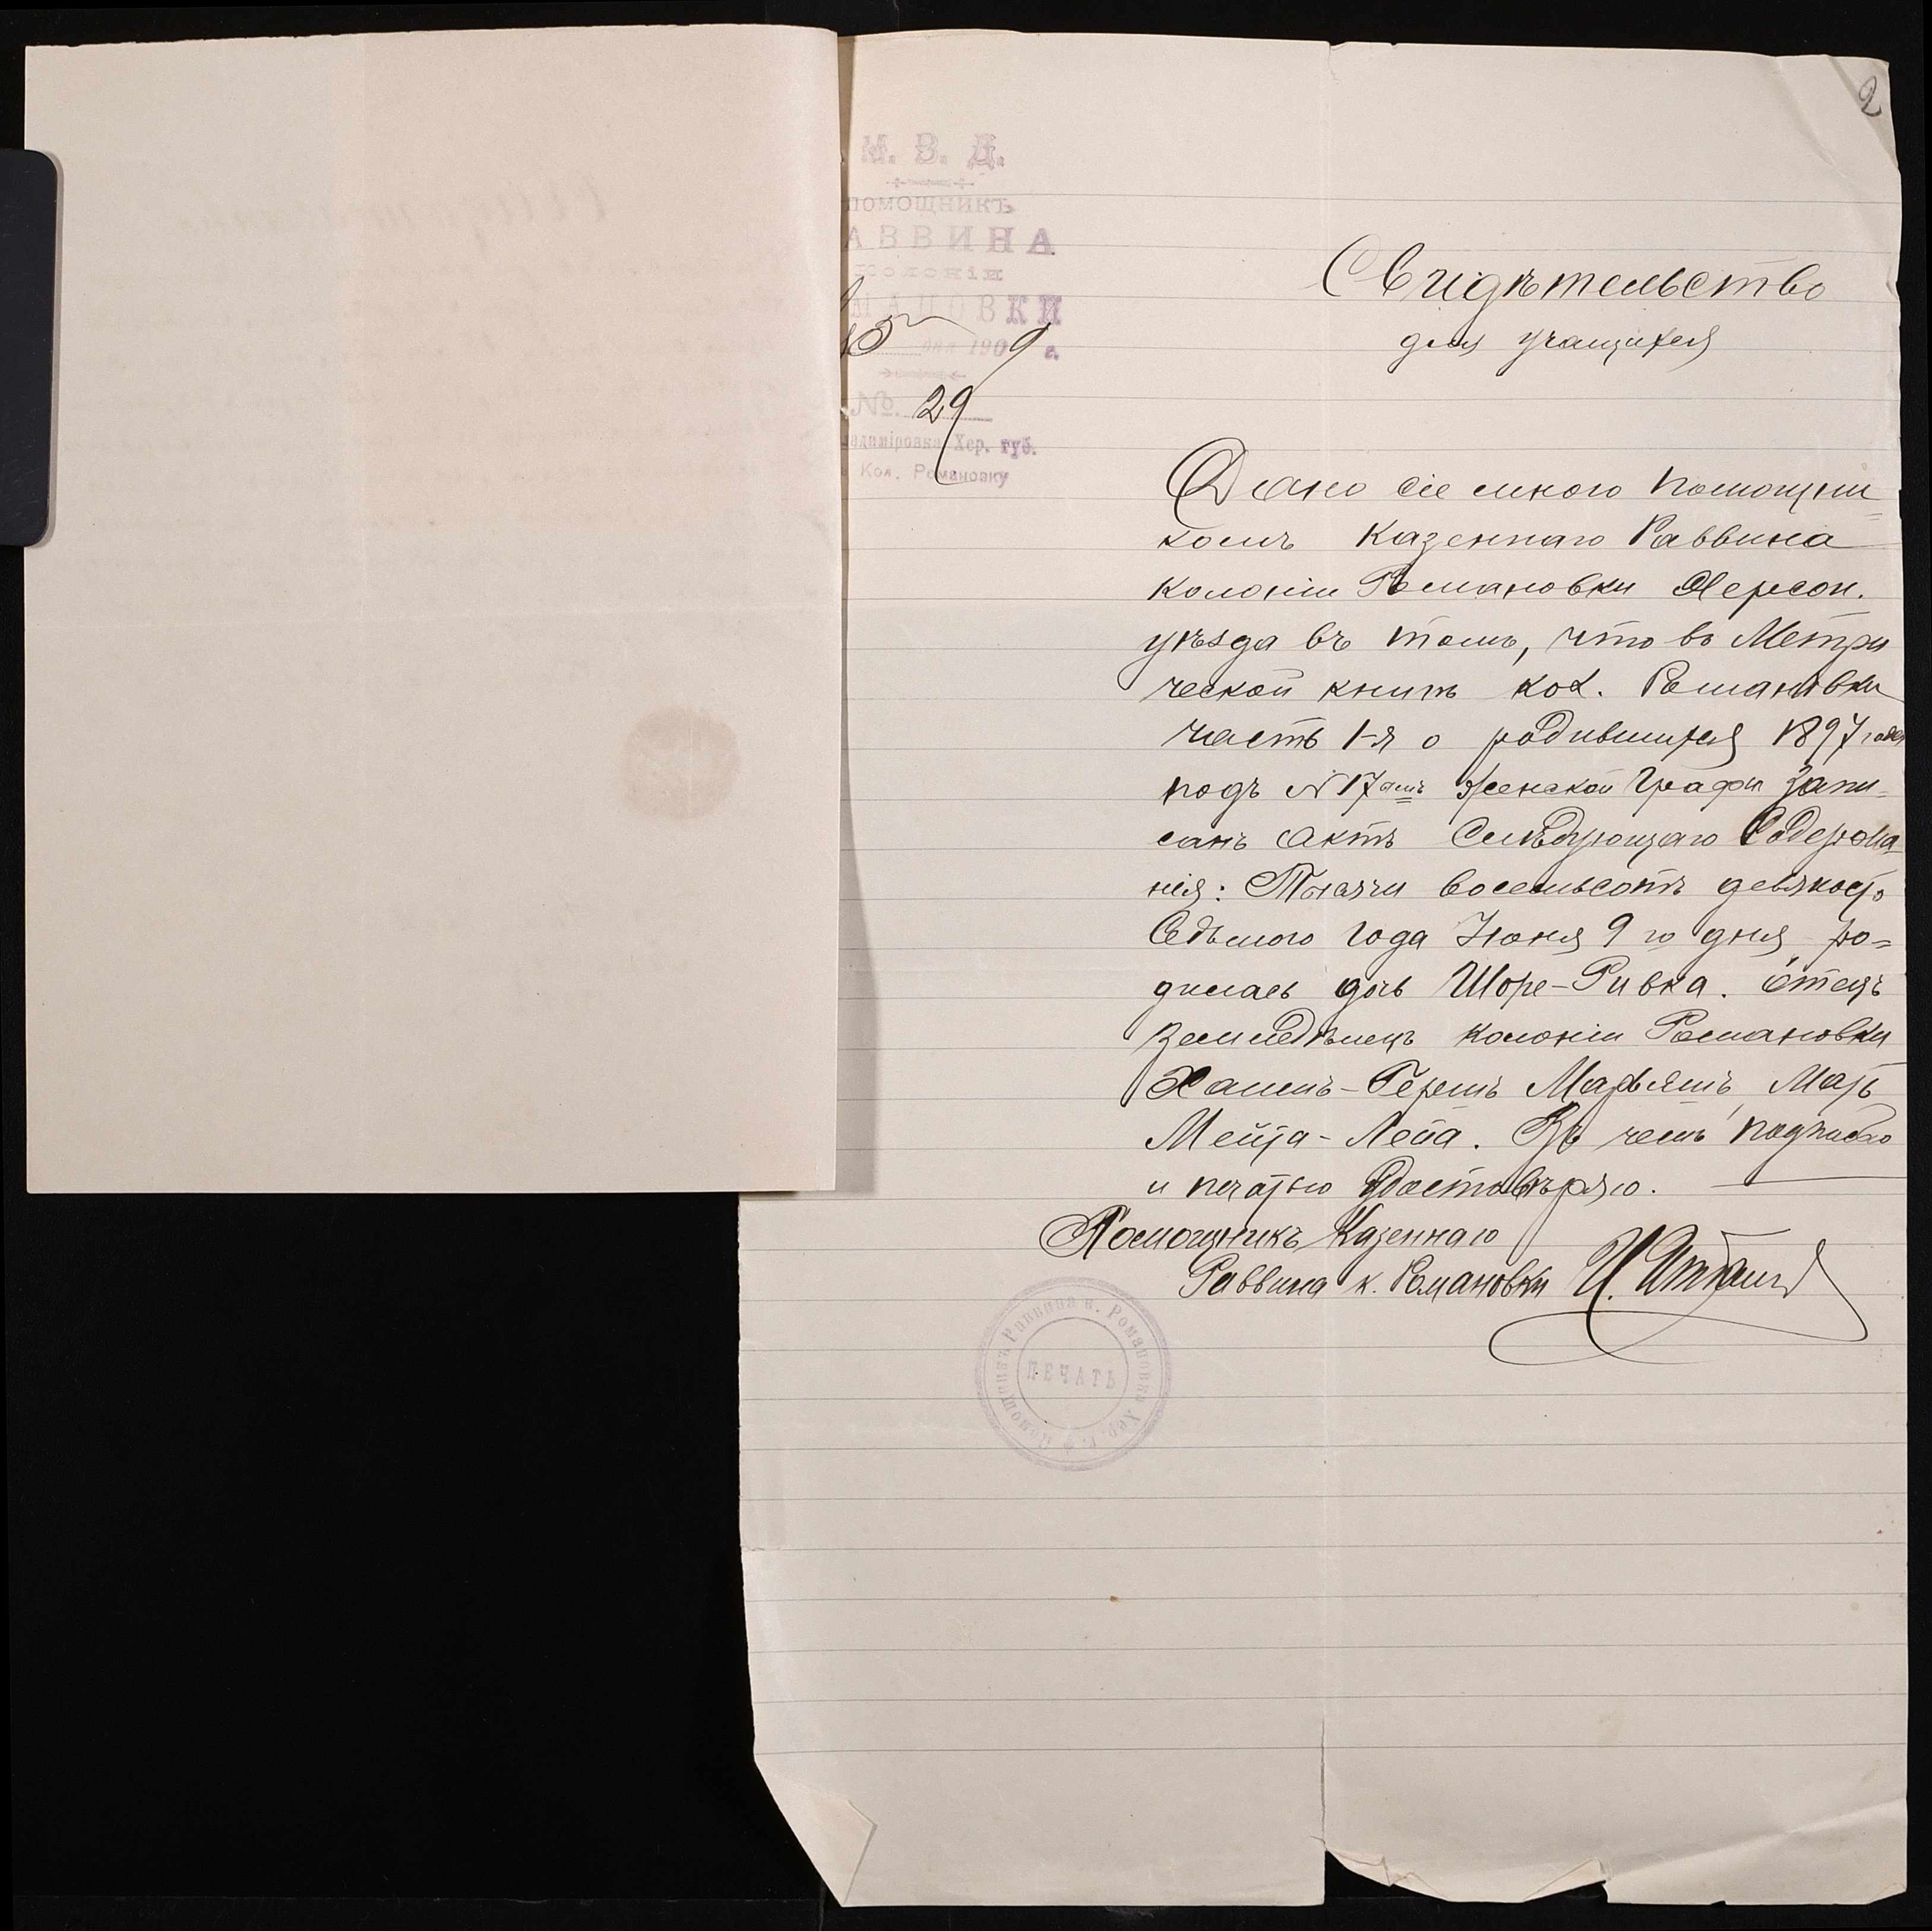 2
М. В. Д.
ПОМОЩНИКЪ
АВВИНА
Колоніи
МАНОВКИ
15 дня 1909 г.
№ 29
адиміровка Хер. губ.
Кол. Романовку
Свидѣтельство
для учащихся
Дано сіе мною помощни=
комъ Казеннаго Раввина
колоніи Романовки Херсон.
уѣзда въ томъ, что въ Метри
ческой книгѣ кол. Романовки
часть 1-я о родившихся 1897 года
подъ № 17 Женской Графы запи=
санъ Актъ Слѣдующаго Содержа
нія: Тысячи восемьсотъ девяносто
Седьмого года Іюня 9 го дня ро=
дилась дочь Шоре-Ривка. Отецъ
земледѣлецъ колоніи Романовки
Хаимъ-Гершъ Марьямъ, Мать
Мейта-Лея. Въ чемъ подписью
и печатью Удостовѣряю.
Помощникъ Казеннаго
Раввина к. Романовки И.
Помощникъ Раввина к. Романовки Хер. г.
ПЕЧАТЬ